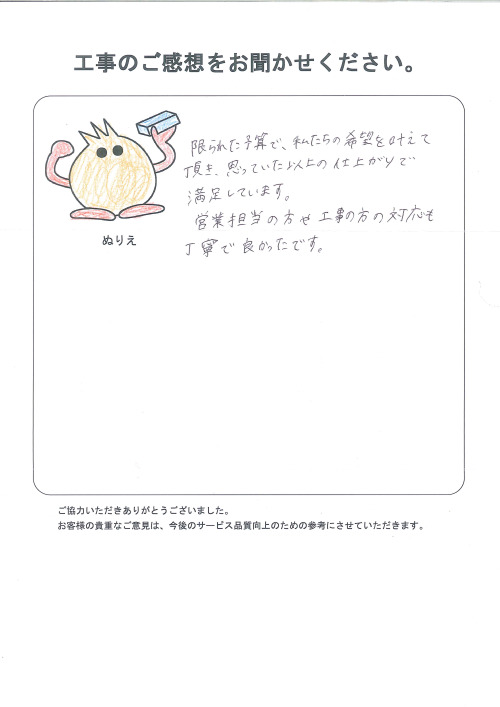 工事のご感想をお聞かせください。
限られた予算で、私たちの希望を叶えて
頂き、思っていた以上の仕上がりで
満足しています。
営業担当の方や工事の方の対応も
丁寧で良かったです。
ぬりえ
ご協力いただきありがとうございました。
お客様の貴重なご意見は、今後のサービス品質向上のための参考にさせていただきます。